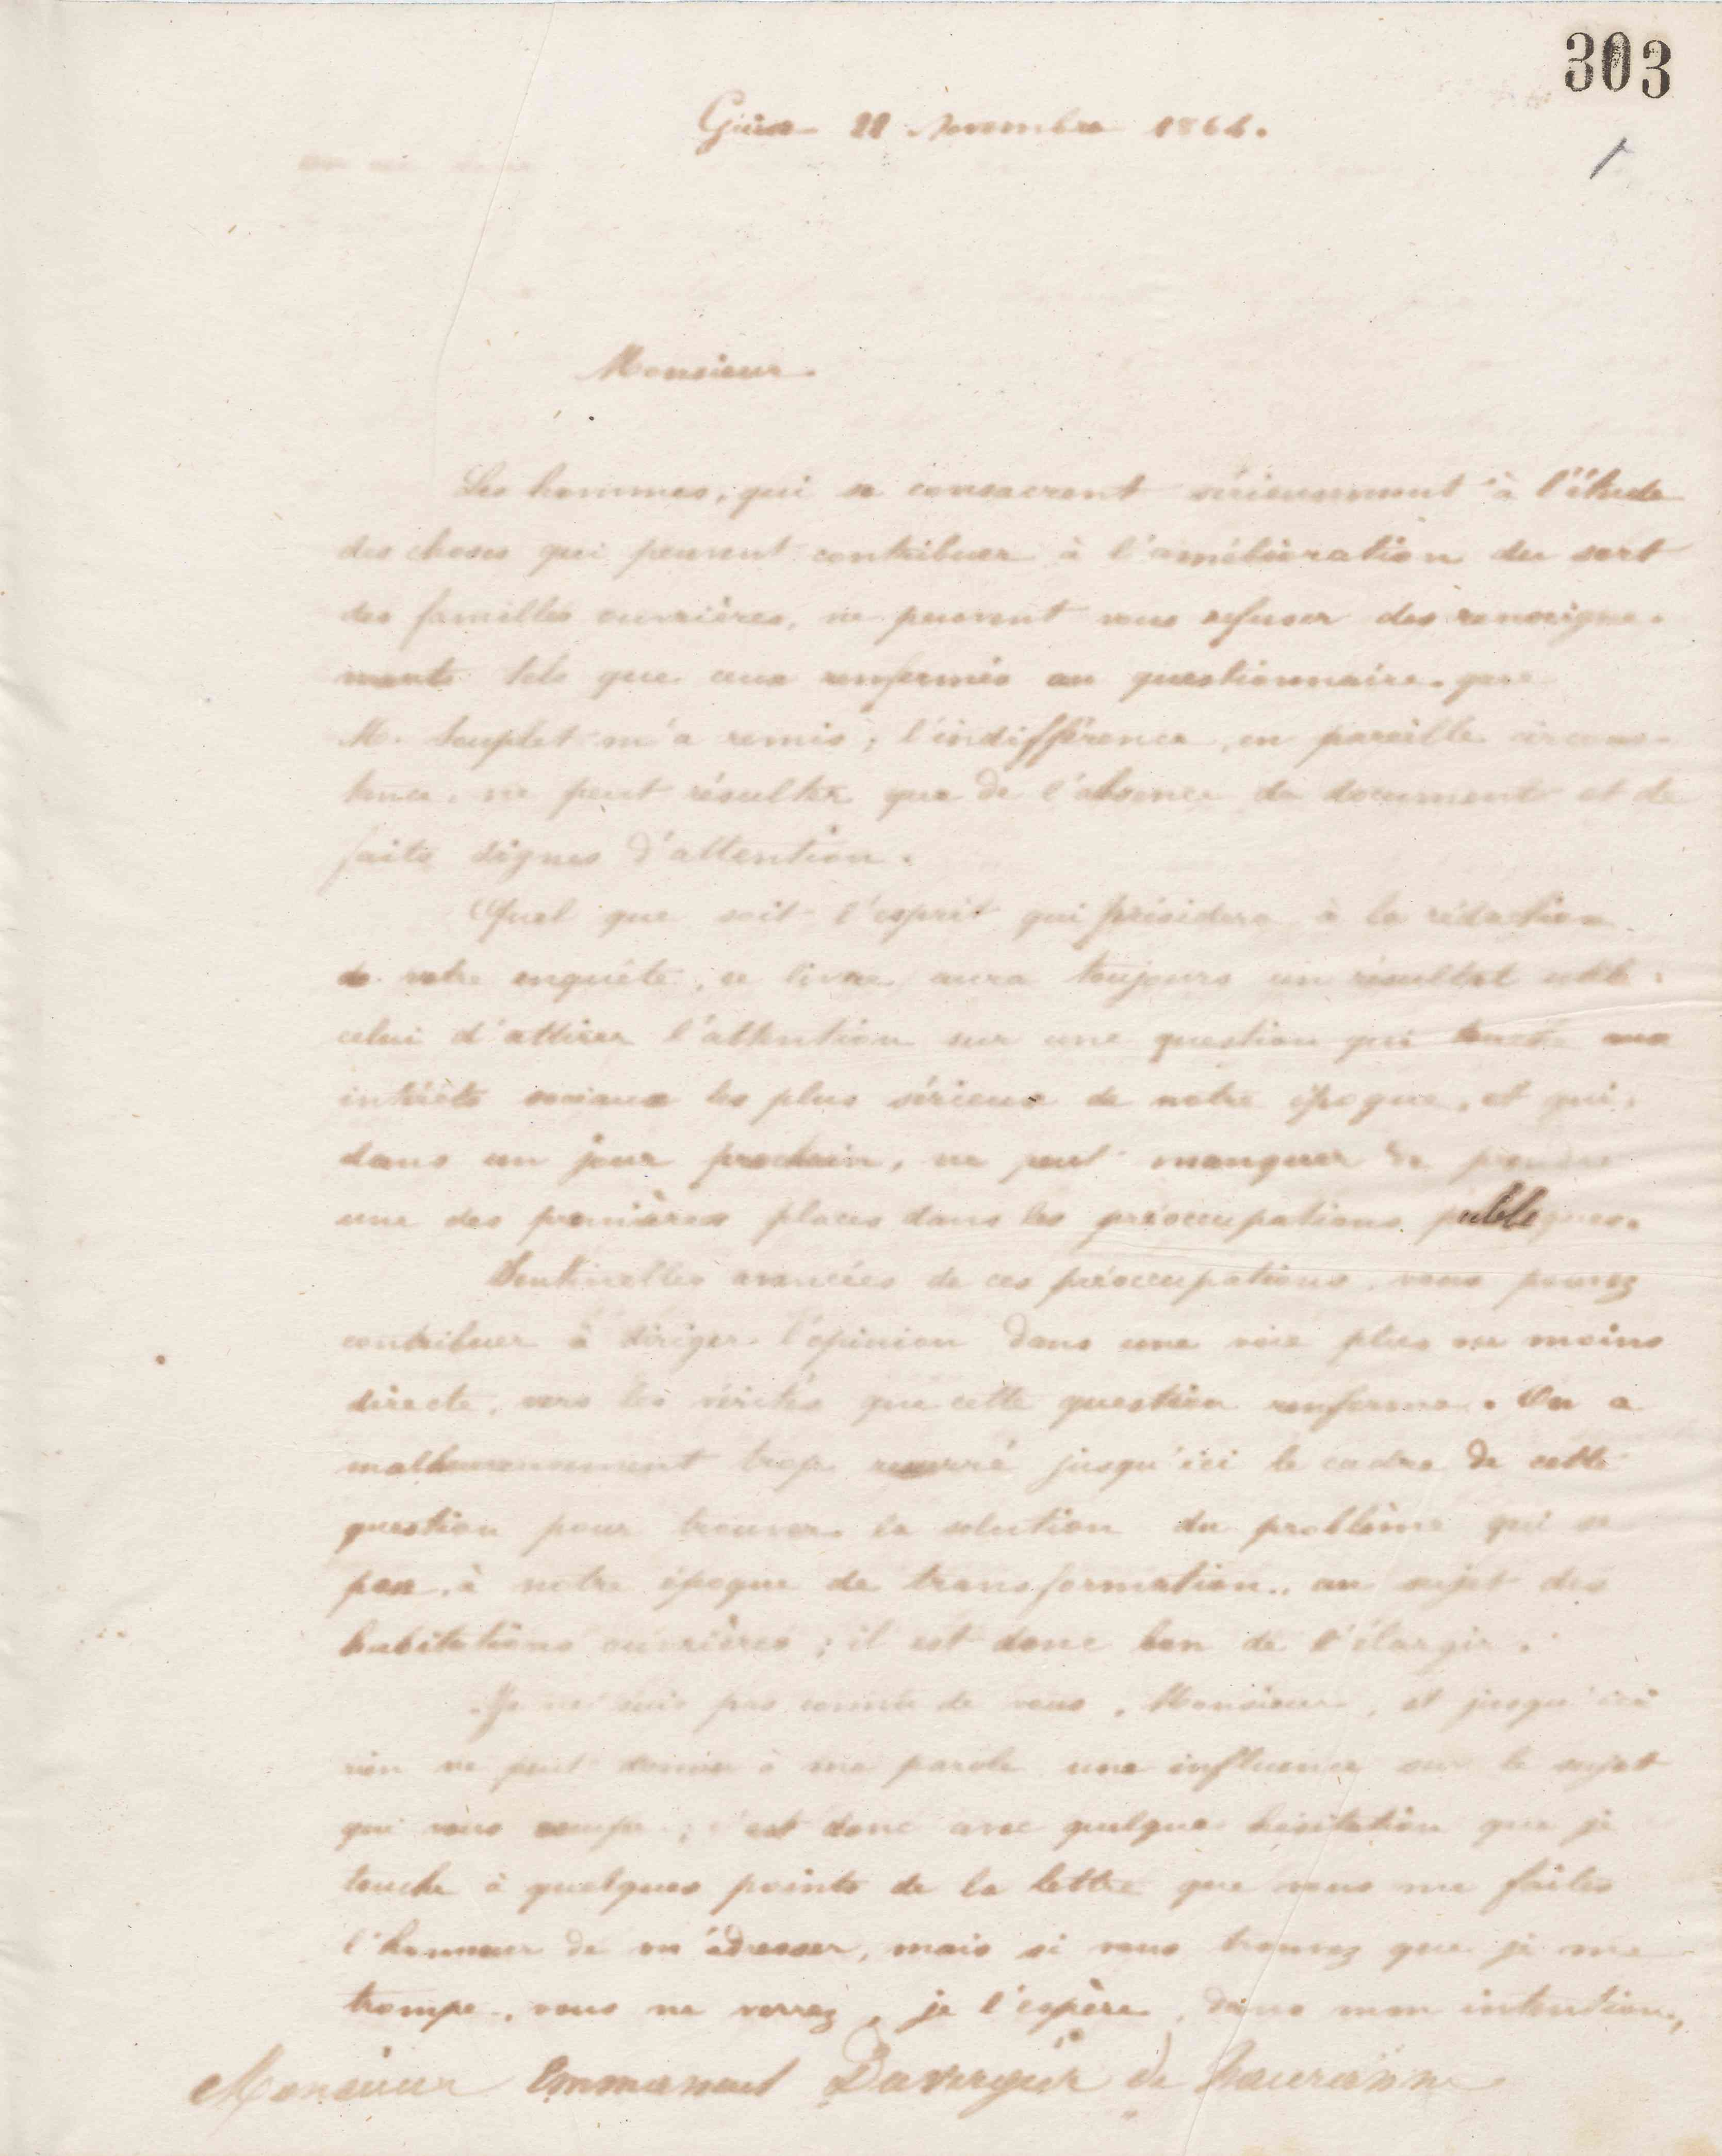 303
Guise 11 Novembre 1864.
Monsieur.
Les hommes, qui se consacrent sérieusement à l'étude
des choses qui peuvent contribuer à l'amélioration du sort
des familles ouvrières, ne peuvent vous refuser des renseigne-
ments tels que ceux renfermés au questionnaire que
M. Souplet m'a remis ; l'indifférence, en pareille circons-
tance, ne peut résulter que de l'absence de documents et de
faits dignes d'attention.
Quel que soit l'esprit qui présidera à la rédaction
de votre enquête, ce livre aura toujours un résultat utile :
celui d'attirer l'attention sur une question qui touche aux
intérêts sociaux les plus sérieux de notre époque, et qui,
dans un jour prochain, ne peut manquer de prendre
une des premières places dans les préoccupations publiques.
Sentinelles avancées de ces préoccupations, vous pouvez
contribuer à diriger l'opinion dans une voie plus ou moins
directe, vers les vérités que cette question renferme. On a
malheureusement trop resserré jusqu'ici le cadre de cette
question pour trouver la solution du problème qui se
pose, à notre époque de transformation, au sujet des
habitations ouvrières ; il est donc bon de l'élargir.
Je ne suis pas connu de vous, Monsieur, et jusqu'ici
rien ne peut donner à ma parole une influence sur le sujet
qui vous occupe ; c'est donc avec quelque hésitation que je
touche à quelques points de la lettre que vous me faites
l'honneur de m'adresser, mais si vous trouvez que je me
trompe, vous ne verrez, je l'espère, dans mon intention,
Monsieur Emmanuel Duvergier de Hauranne